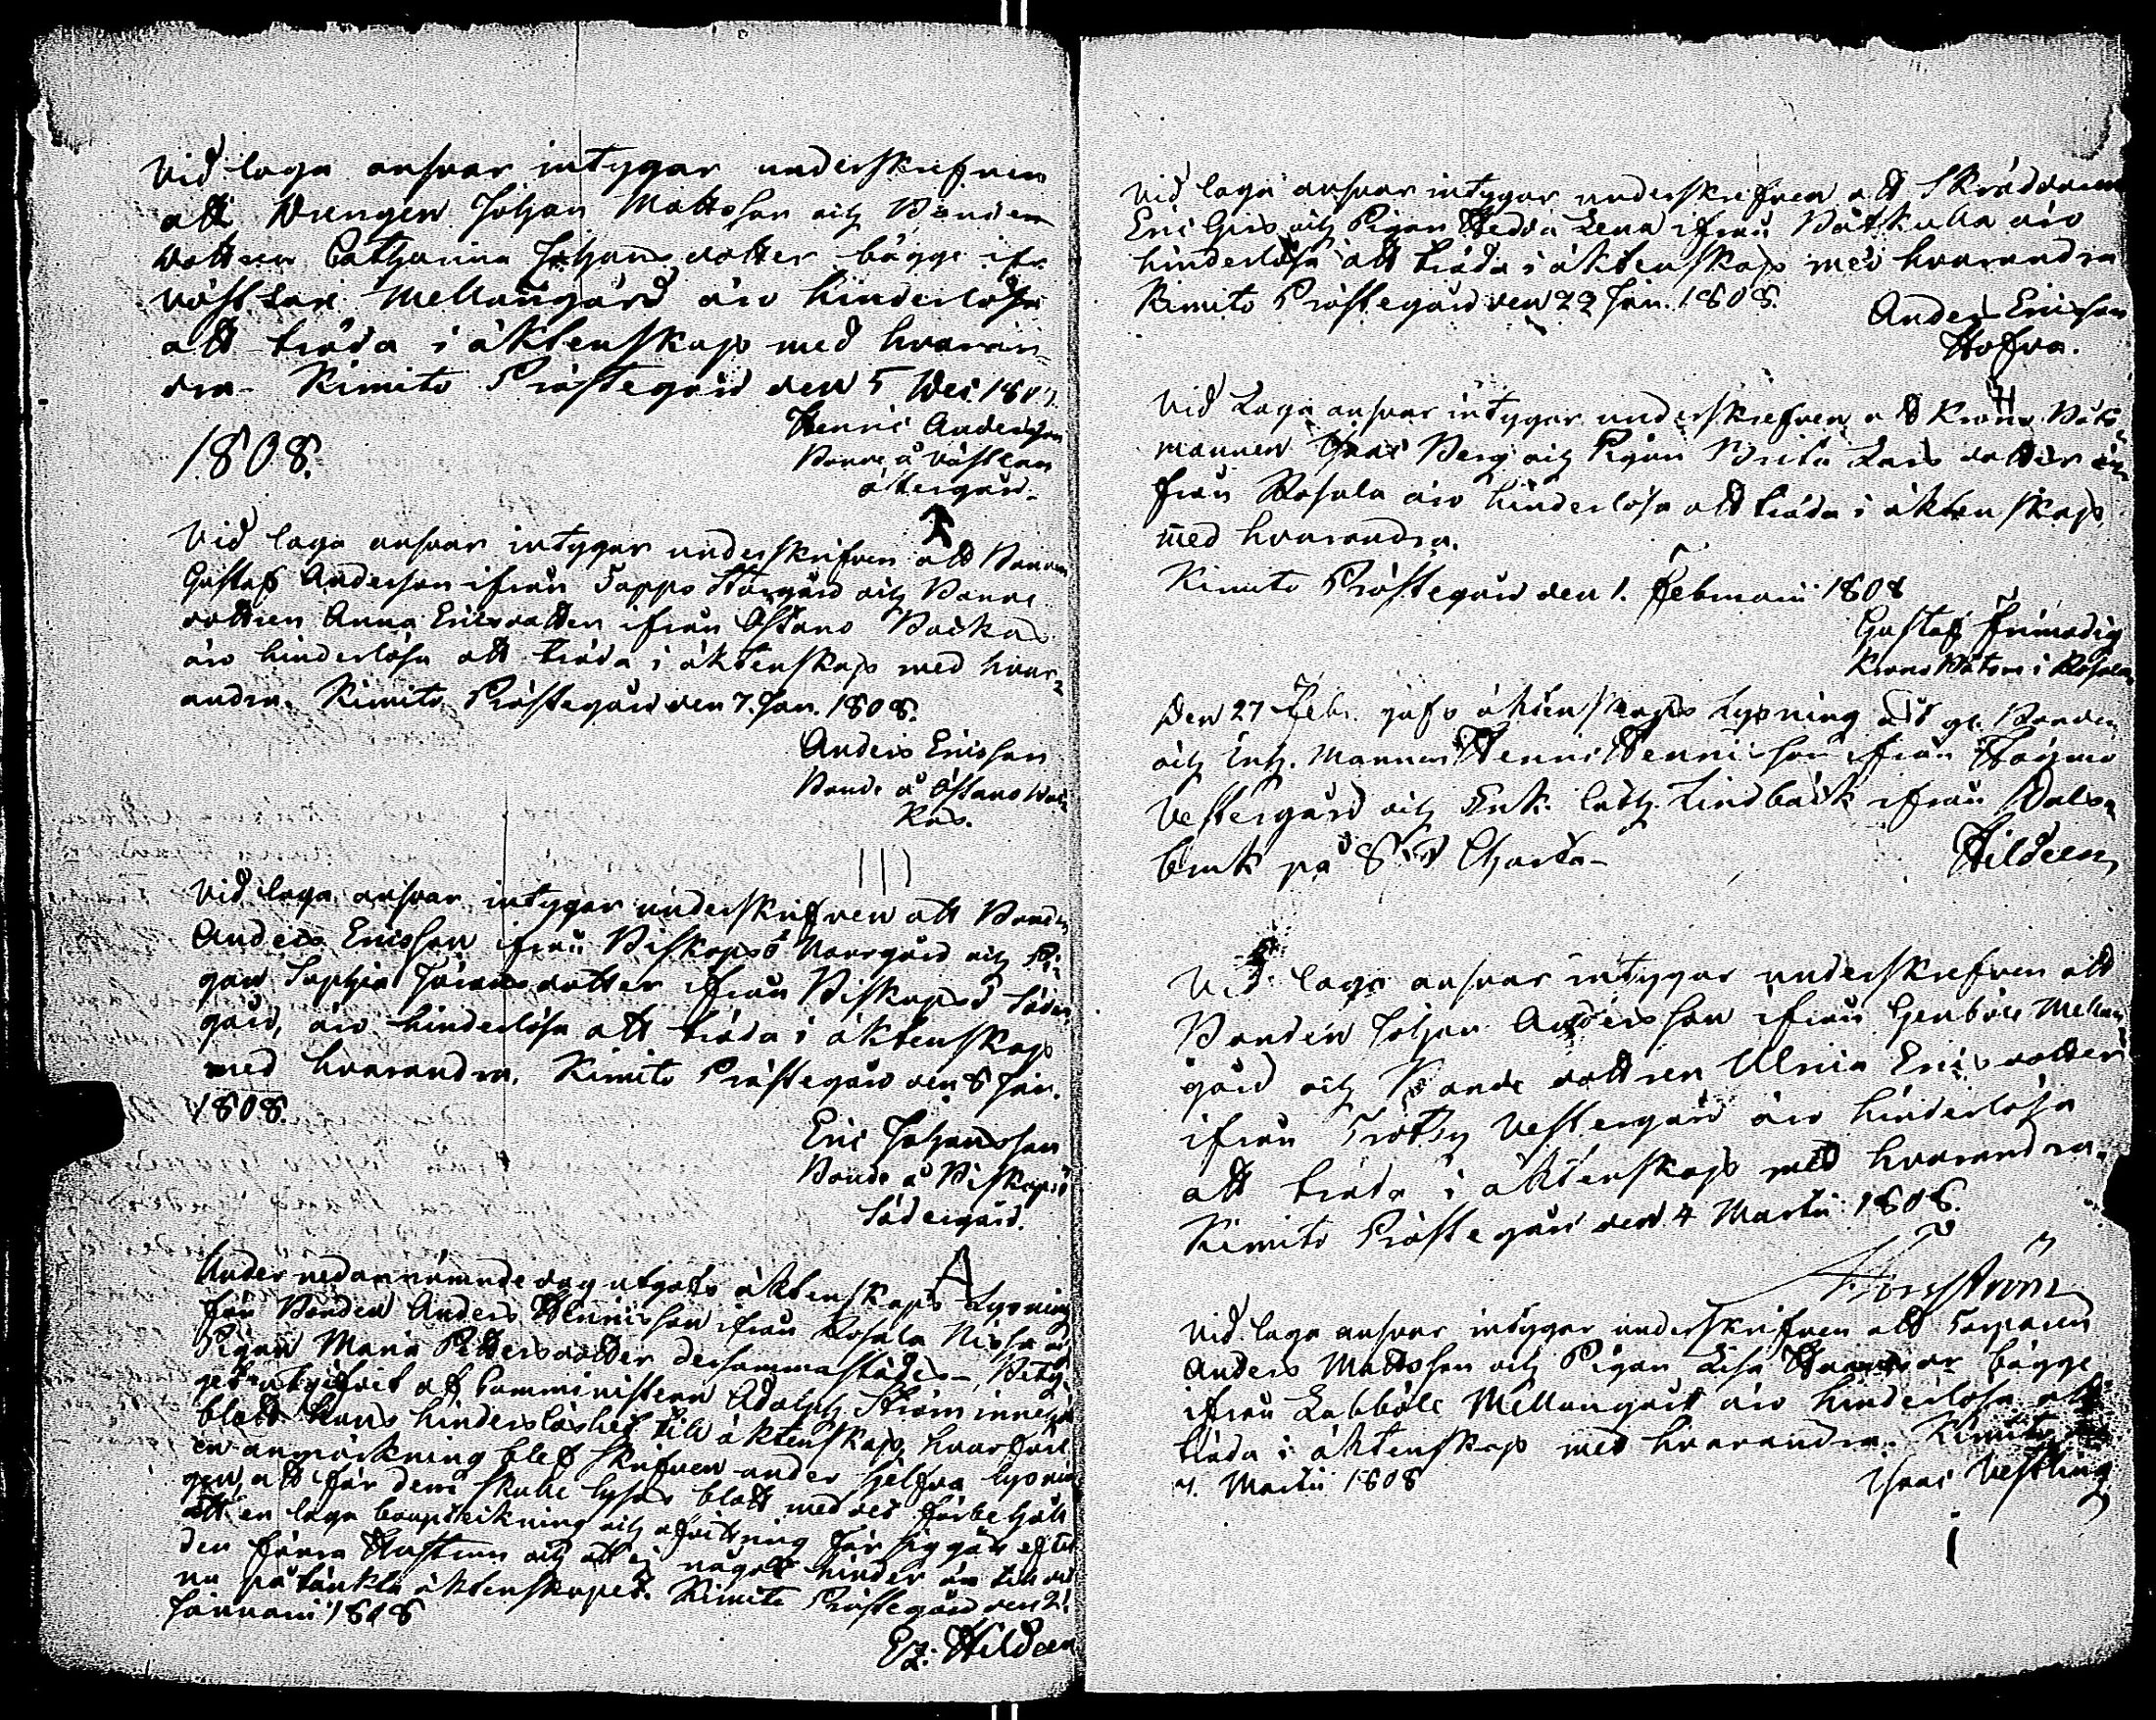 Vid laga ansvar intygar underskrefven
att Drengen Johan Mattsson och Bonde
dottren Catharina Johansdotter bägge ifr.
Västlax Mellangård äro hinderlösa
att träda i äktenskap med hvaran-
dra. Kimito Prästegård den 5 Dec. 1807.
Henric Andersson
Bonde å Västlax
åkergård.
1808.
Vid laga ansvar intygar underskrifven att Bonden
Gustaf Andersson ifrån Tappo Storgård och Bonde
dottren Anna Ericsdotter ifrån Östano Backas
äro hinderlösa att träda i äktenskap med hvar-
andra. Kimito Prästegård den 7. Jan. 1808.
Anders Ericsson
Bonde å Östano Bac-
kas.
Vid laga ansvar intygar underskrifven att Bonden
Anders Ericsson ifrån Biskopsö Norrgård och Pi-
gan Sophia Göransdotter ifrån Biskopsö Söder
gård, äro hinderlösa att träda i äktenskap
med hvarandra. Kimito Prästegård den 8 Jan.
1808.
Eric Johansson
Bonde å Biskopsö
Södergård.
Under nedannämnde dag utgafs äktenskaps Lysning
för Bonden Anders Hennicsson ifrån Rosala Nissas och
Pigan Maria Pettersdotter dersammastädes. Bety-
get utgifvet af Comministern Adolph Ström innehöll
blott hans hinderslöshet till äktenskap, hvarföre
en anmärkning blef skrifven under sjelfva lysnin
gen, att för dem skulle lysas blott med det förbehåll
att en laga bouptekning och afvittring för sig går efter
den förra Hustrun och att ej något hinder är till det
nu påtänkta äktenskapet. Kimito Prästegård den 21
Januarii 1808
Ez: Hildeen
Vid laga ansvar intygar underskrefven att Skräddaren
Eric Gris och Pigan Hedda Lena ifrån Båtkulla äro
hinderlösa att träda i äktenskap med hvarandra
Kimito Prästegård den 22 Jan. 1808.
Anders Ericsson
Hofva.
Vid Laga ansvar intygar underskrefven att Krono Båts-
mannen Isaac Berg och Pigan Brita Lars dotter
från Rosala äro hinderlösa att träda i äktenskap
med hvarandra.
Kimito Prästegård den 1. Februarii 1808
Gustaf Frimodig
Krono Båtsm i Rosala
Den 27 Febr. gafs äktenskaps Lysning åt gl. Bonden
och Enk. Mannen Hennic Hennicsson ifrån Högmo
Vestergård och Enk. Cath. Lindbäck ifrån Dals-
bruk på 8 Charta
Hildeen
Vid laga ansvar intygar underskrefven att
Bonden Johan Andersson ifrån Genböle Mellan
gård och Bonde dottren Ulrica Ericsdotter
ifrån Trotby Vestergård äro hinderlösa
att träda i äktenskap med hvarandra.
Kimito Prästegård den 4 Martii 1808.
Vid laga ansvar intygar underskrifven att Torparen
Anders Mattsson och Pigan Lisa bägge
ifrån Labböle Mellangård äro hinderlösa att
träda i äktenskap med hvarandra. Kimito
7. Martii 1808
Isaac Vestling